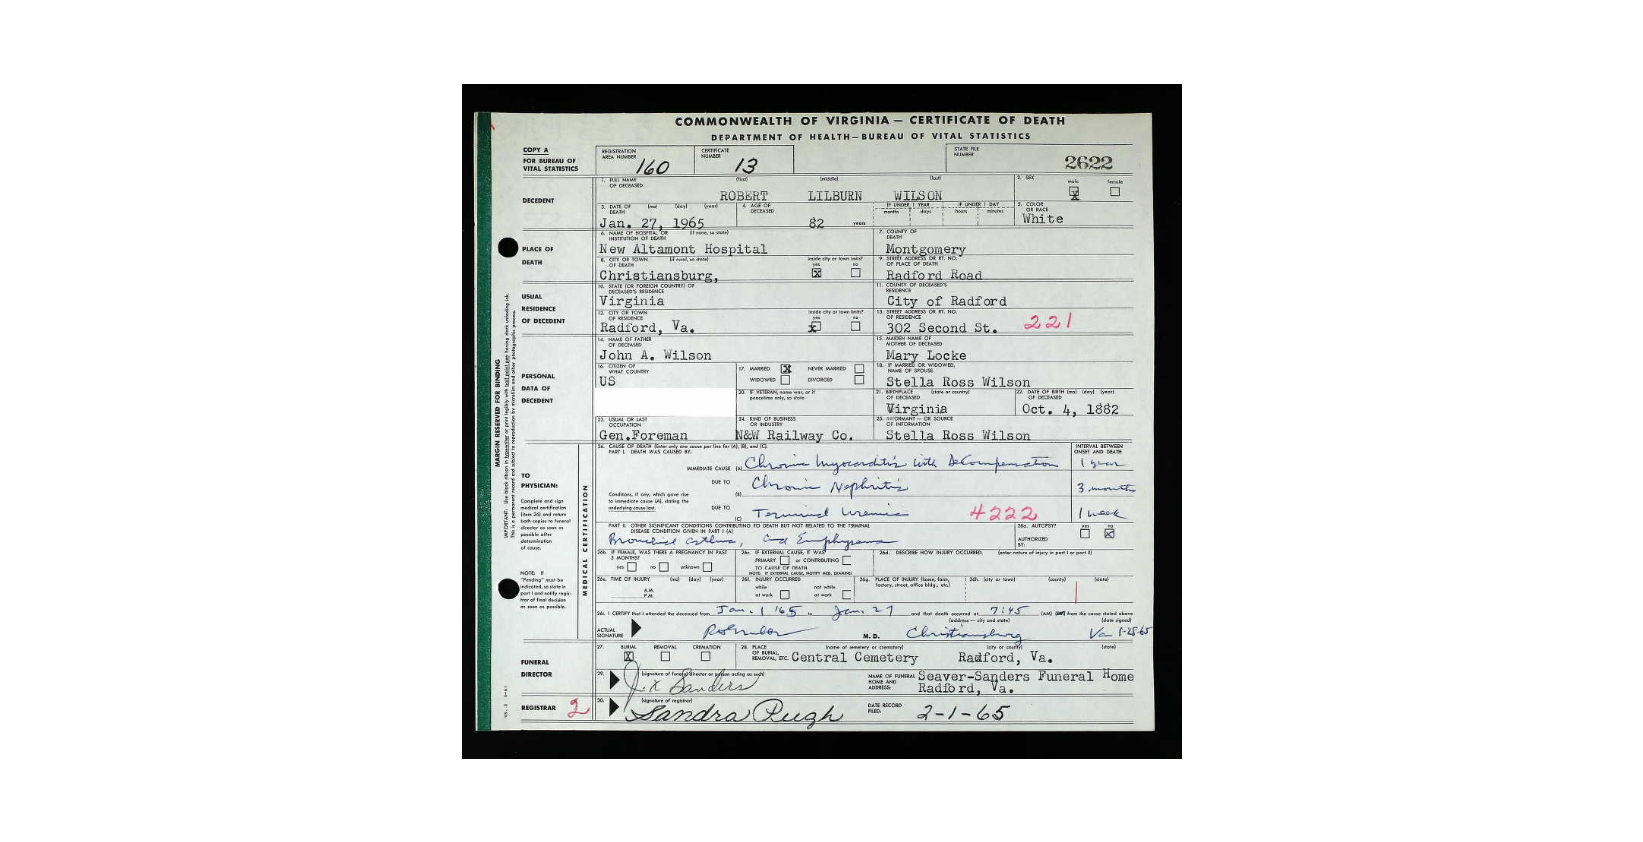 COMMONWEALTH OF VIRGINIA — CERTIFICATE OF DEATH
DEPARTMENT OF HEALTH—BUREAU OF VITAL STATISTICS
COPY A
FOR BUREAU OF
VITAL STATISTICS
REGISTRATION AREA NUMBER 160
CERTIFICATE NUMBER 13
STATE FILE NUMBER 2622
DECEDENT
1. FULL NAME OF DECEASED (first) (middle) (last)
ROBERT LILBURN WILSON
2. SEX male X female
3. DATE OF DEATH (mo) (day) (year) Jan. 27, 1965
4. AGE OF DECEASED 82 years
IF UNDER 1 YEAR months days IF UNDER 1 DAY hours minutes
5. COLOR OR RACE White
PLACE OF DEATH
6. NAME OF HOSPITAL OR INSTITUTION OF DEATH (if none, so state) New Altamont Hospital
7. COUNTY OF DEATH Montgomery
8. CITY OR TOWN OF DEATH (if rural, so state) Christiansburg, inside city or town limits? yes X no
9. STREET ADDRESS OR RT. NO. OF PLACE OF DEATH Radford Road
USUAL RESIDENCE OF DECEDENT
10. STATE (OR FOREIGN COUNTRY) OF DECEASED'S RESIDENCE Virginia
11. COUNTY OF DECEASED'S RESIDENCE City of Radford
12. CITY OR TOWN OF RESIDENCE Radford, Va. inside city or town limits? yes X no
13. STREET ADDRESS OR RT. NO. OF RESIDENCE 302 Second St. 221
PERSONAL DATA OF DECEDENT
14. NAME OF FATHER OF DECEASED John A. Wilson
15. MAIDEN NAME OF MOTHER OF DECEASED Mary Locke
16. CITIZEN OF WHAT COUNTRY US
17. MARRIED X NEVER MARRIED
WIDOWED DIVORCED
18. IF MARRIED OR WIDOWED, NAME OF SPOUSE Stella Ross Wilson
20. IF VETERAN, name war, or if peacetime only, so state
21. BIRTHPLACE OF DECEASED (state or country) Virginia
22. DATE OF BIRTH (mo) (day) (year) OF DECEASED Oct. 4, 1882
23. USUAL OR LAST OCCUPATION Gen.Foreman
24. KIND OF BUSINESS OR INDUSTRY N&W Railway Co.
25. INFORMANT — OR SOURCE OF INFORMATION Stella Ross Wilson
MARGIN RESERVED FOR BINDING
MEDICAL CERTIFICATION
TO PHYSICIAN:
Complete and sign
medical certification
(item 26) and return
both copies to funeral
director as soon as
possible after
determination
of cause.
NOTE: If
"Pending" must be
indicated, so state in
part I and notify regis-
trar of final decision
as soon as possible.
26. CAUSE OF DEATH (Enter only one cause per line for (A), (B), and (C).
PART I. DEATH WAS CAUSED BY:
INTERVAL BETWEEN ONSET AND DEATH
IMMEDIATE CAUSE (A) Chronic Myocarditis with Decompensation 1 year
DUE TO (B) Chronic Nephritis 3 months
Conditions, if any, which gave rise to immediate cause (A), stating the underlying cause last.
DUE TO (C) Terminal Uremia 4222 1 week
PART II. OTHER SIGNIFICANT CONDITIONS CONTRIBUTING TO DEATH BUT NOT RELATED TO THE TERMINAL DISEASE CONDITION GIVEN IN PART I (A)
Bronchial asthma, and Emphysema
26a. AUTOPSY? yes no X
AUTHORIZED BY:
26b. IF FEMALE, WAS THERE A PREGNANCY IN PAST 3 MONTHS? yes no unknown
26c. IF EXTERNAL CAUSE, IT WAS PRIMARY or CONTRIBUTING TO CAUSE OF DEATH
NOTE: IF EXTERNAL CAUSE, NOTIFY MED. EXAMINER
26d. DESCRIBE HOW INJURY OCCURRED. (enter nature of injury in part I or part II)
26e. TIME OF INJURY (mo) (day) (year) A.M. P.M.
26f. INJURY OCCURRED while at work not while at work
26g. PLACE OF INJURY (home, farm, factory, street, office bldg., etc.)
26h. (city or town) (county) (state)
26i. I CERTIFY that I attended the deceased from Jan. 1 '65 to Jan. 27 and that death occurred at 7:45 (AM) (PM) from the cause stated above
ACTUAL SIGNATURE M.D. (address — city and state) Christiansburg Va (date signed) 1-28-65
FUNERAL DIRECTOR
27. BURIAL X REMOVAL CREMATION
28. PLACE OF BURIAL, REMOVAL, ETC. (name of cemetery or crematory) (city or county) (state)
Central Cemetery Radford, Va.
29. (signature of funeral director or person acting as such) J. K. Sanders
NAME OF FUNERAL HOME AND ADDRESS: Seaver-Sanders Funeral Home
Radford, Va.
REGISTRAR 2
30. (signature of registrar) Sandra Pugh
DATE RECORD FILED: 2-1-65